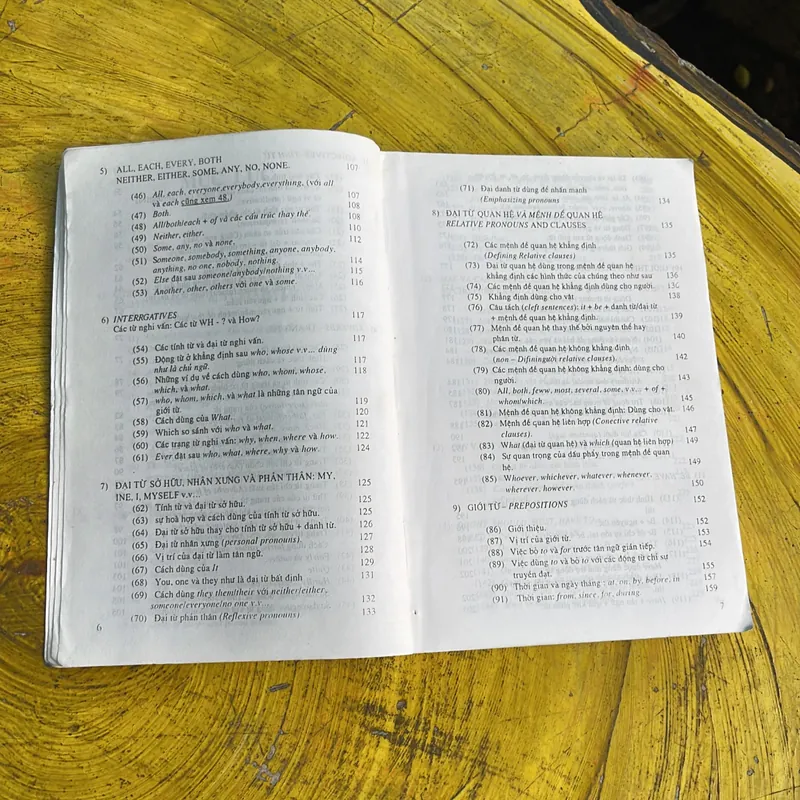 5) ALL, EACH, EVERY, BOTH
NEITHER, EITHER, SOME, ANY, NO, NONE. 107
(46) All, each, everyone,everybody,everything, (với all
và each cũng xem 48.) 107
(47) Both. 108
(48) All/both/each + of và các cấu trúc thay thế. 108
(49) Neither, either. 110
(50) Some, any, no và none. 112
(51) Someone, somebody, something, anyone, anybody,
anything, no one, nobody, nothing. 114
(52) Else đặt sau someone/anybody/nothing v.v... 115
(53) Another, other, others với one và some. 116
6) INTERRGATIVES 117
Các từ nghi vấn: Các từ WH - ? và How?
(54) Các tính từ và đại từ nghi vấn. 117
(55) Động từ ở khẳng định sau who, whose v.v... dùng
như là chủ ngữ. 117
(56) Những ví dụ về cách dùng who, whom, whose, 118
which, và what.
(57) who, whom, which, và what là những tân ngữ của
giới từ. 119
(58) Cách dùng của What. 120
(59) Which so sánh với who và what. 121
(60) Các trạng từ nghi vấn: why, when, where và how. 122
(61) Ever đặt sau who, what, where, why và how. 124
7) ĐẠI TỪ SỞ HỮU, NHÂN XƯNG VÀ PHẢN THÂN: MY,
INE, I, MYSELF v.v... 125
(62) Tính từ và đại từ sở hữu. 125
(63) sự hoà hợp và cách dùng của tính từ sở hữu. 125
(64) Đại từ sở hữu thay cho tính từ sở hữu + danh từ. 126
(65) Đại từ nhân xưng (personal pronouns). 127
(66) Vị trí của đại từ làm tân ngữ. 128
(67) Cách dùng của It 129
(68) You, one và they như là đại từ bất định 131
(69) Cách dùng they/them/their với neither/either,
someone/everyone/no one v.v... 132
(70) Đại từ phản thân (Reflexive pronouns) 133
6
(71) Đại danh từ dùng để nhấn mạnh
(Emphasizing pronouns 134
8) ĐẠI TỪ QUAN HỆ VÀ MỆNH ĐỀ QUAN HỆ
RELATIVE PRONOUNS AND CLAUSES 135
(72) Các mệnh đề quan hệ khẳng định
(Defining Relative clauses) 135
(73) Đại từ quan hệ dùng trong mệnh đề quan hệ
khẳng định các hình thức của chúng theo như sau 136
(74) Các mệnh đề quan hệ khẳng định dùng cho người. 130
(75) Khẳng định dùng cho vật 138
(76) Câu tách (cleft sentences): it + be + danh từ/đại từ
+ mệnh đề quan hệ khẳng định. 139
(77) Mệnh đề quan hệ thay thế bởi nguyên thể hay
phân từ. 140
(78) Các mệnh đề quan hệ không khẳng định
(non – Difiningười relative clauses). 142
(79) Các mệnh đề quan hệ không khẳng định: dùng cho
người. 143
(80) All, both, feww, most, several, some, v.v... + of +
whom/which. 145
(81) Mệnh đề quan hệ không khẳng định: Dùng cho vật. 146
(82) Mệnh đề quan hệ liên hợp (Conective relative
clauses). 147
(83) What (đại từ quan hệ) và which (quan hệ liên hợp) 149
(84) Sự quan trọng của dấu phẩy trong mệnh đề quan
hệ. 149
(85) Whoever, whichever, whatever, whenever,
wherever, however. 150
9) GIỚI TỪ – PREPOSITIONS 152
(86) Giới thiệu. 152
(87) Vị trí của giới từ. 153
(88) Việc bỏ to và for trước tân ngữ gián tiếp. 154
(89) Việc dùng to và bỏ to với các động từ chỉ sự
truyền đạt. 155
(90) Thời gian và ngày tháng : at, on, by, before, in 157
(91) Thời gian: from, since, for, during. 159